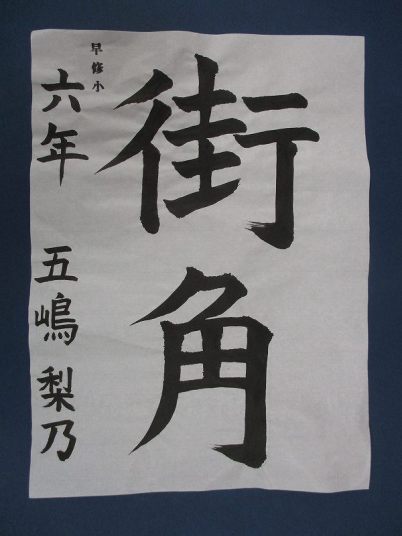 街角
早修小
六年 五嶋梨乃